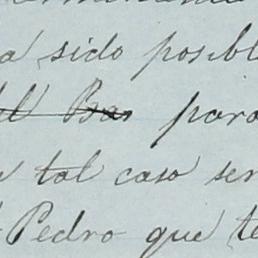 a sido posibl
del Bas para
tal caso ser
Pedro que te